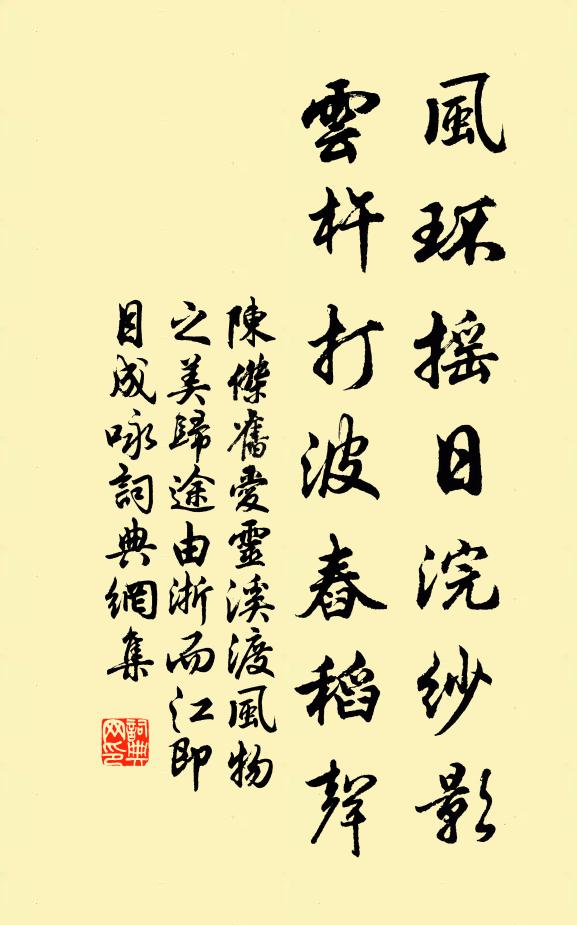 風环摇日浣紗影
雲杵打波舂稻聲
陳傑舊愛靈溪渡風物
之美歸途由浙而江即
目成咏詞典網集
詞典网印